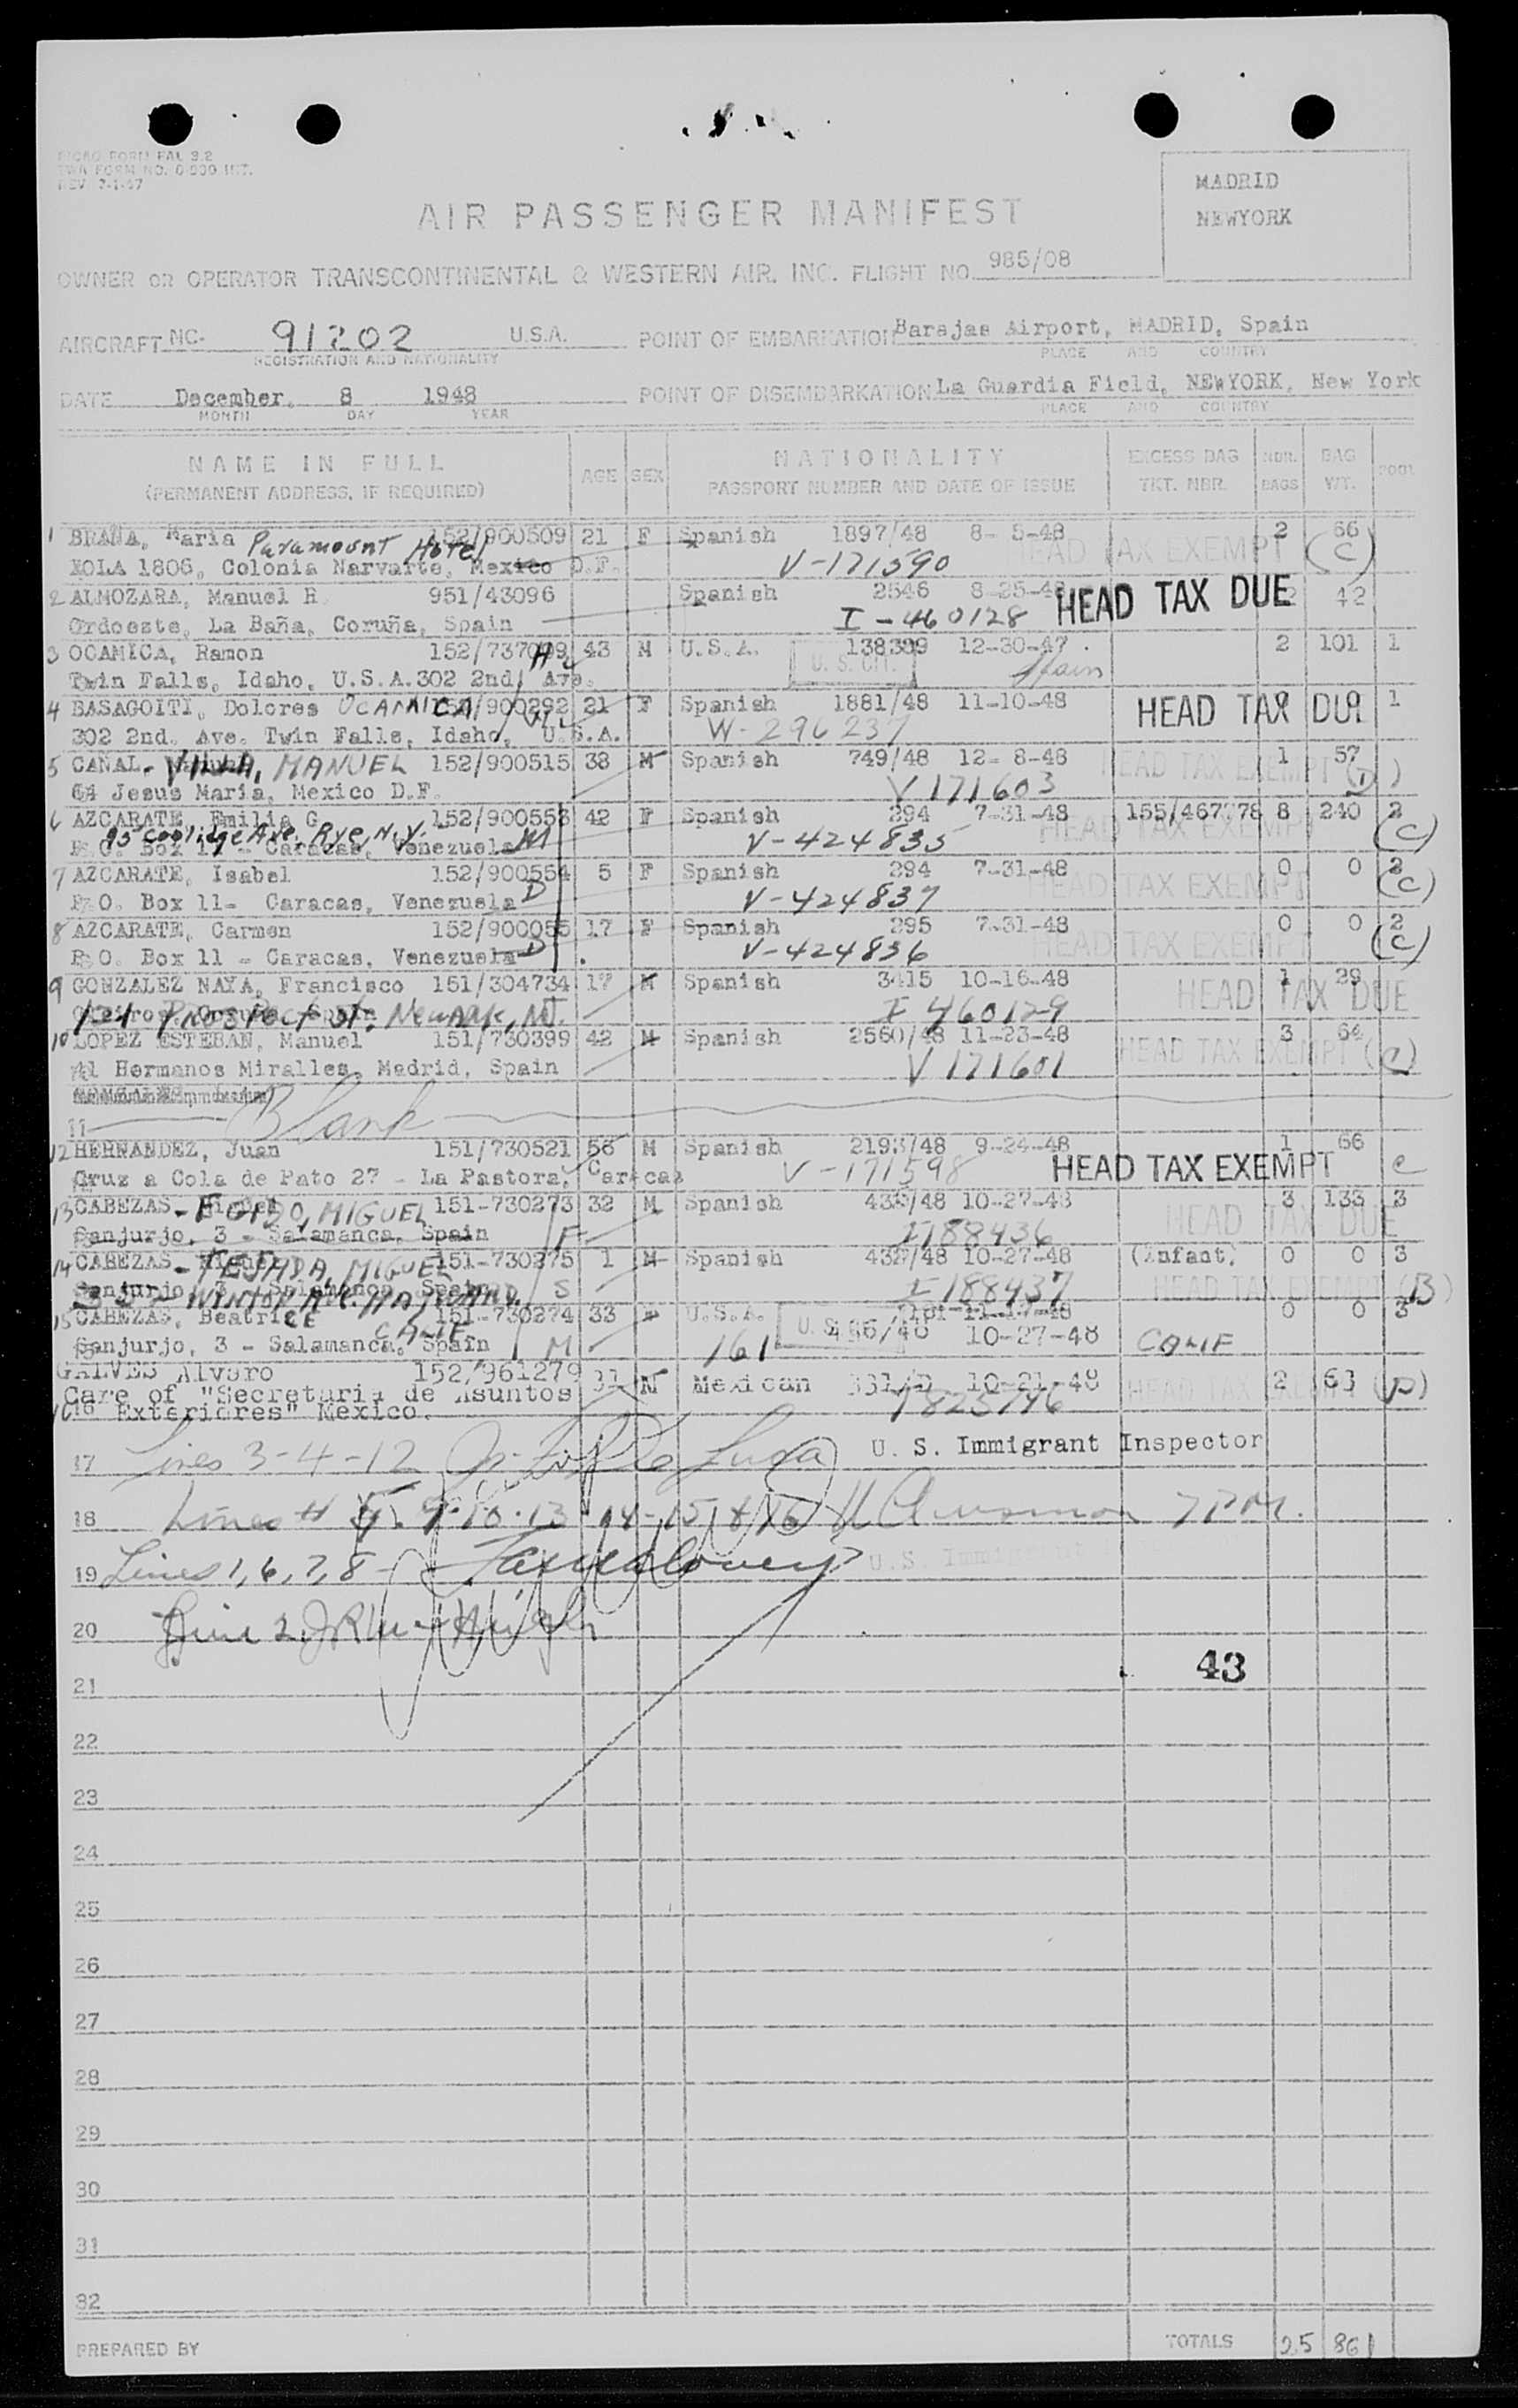 ICAO FORM FAL 3.2
REV 7-1-47
MADRID
NEWYORK
AIR PASSENGER MANIFEST
OWNER OR OPERATOR TRANSCONTINENTAL & WESTERN AIR, INC. FLIGHT NO. 985/08
AIRCRAFT NC- 91202 U.S.A. POINT OF EMBARKATION Barajas Airport, MADRID, Spain
REGISTRATION AND NATIONALITY PLACE AND COUNTRY
DATE December, 8 1948 POINT OF DISEMBARKATION La Guardia Field, NEWYORK, New York
MONTH DAY YEAR PLACE AND COUNTRY
NAME IN FULL AGE SEX NATIONALITY EXCESS BAG NBR. BAG POOL
(PERMANENT ADDRESS, IF REQUIRED) PASSPORT NUMBER AND DATE OF ISSUE TKT. NBR. BAGS WT.
1 BRAÑA, Maria Paramount Hotel 152/900509 21 F Spanish 1897/48 8- 5-48 HEAD TAX EXEMPT 2 66 (C)
XOLA 1806, Colonia Narvarte, Mexico D.F. V-171590
2 ALMOZARA, Manuel R 951/43096 Spanish 2546 8-25-48 HEAD TAX DUE 2 42
Ordoeste, La Baña, Coruña, Spain I-460128
3 OCAMICA, Ramon 152/737099 43 M U.S.A. 138309 12-30-47 2 101 1
Twin Falls, Idaho, U.S.A. 302 2nd, Ave. H U.S. CIT. Spain
4 BASAGOITI, Dolores OCAMICA 152/900292 21 F Spanish 1881/48 11-10-48 HEAD TAX DUE 0 0 1
302 2nd. Ave. Twin Falls, Idaho, U.S.A. W-296237
5 CAÑAL - VILLA, MANUEL 152/900515 38 M Spanish 749/48 12- 8-48 HEAD TAX EXEMPT 1 57
64 Jesus Maria, Mexico D.F. V 171603
6 AZCARATE, Emilia G. 152/900553 42 F Spanish 294 7-31-48 155/467778 8 240 2
95 Coolidge Ave, Rye, N.Y. HEAD TAX EXEMPT (C)
P.O. Box 11 - Caracas, Venezuela M V-424835
7 AZCARATE, Isabel 152/900554 5 F Spanish 294 7-31-48 HEAD TAX EXEMPT 0 0 2 (C)
P.O. Box 11- Caracas, Venezuela D V-424837
8 AZCARATE, Carmen 152/900055 17 F Spanish 295 7-31-48 HEAD TAX EXEMPT 0 0 2 (C)
P.O. Box 11 - Caracas, Venezuela D V-424836
9 GONZALEZ NAYA, Francisco 151/304734 17 M Spanish 3415 10-16-48 HEAD TAX DUE 1 29
124 Prospect St, Newark, NJ. I 460129
10 LOPEZ ESTEBAN, Manuel 151/730399 42 M Spanish 2560/48 11-23-48 HEAD TAX EXEMPT 3 64 (C)
41 Hermanos Miralles, Madrid, Spain V 171601
11 Blank
12 HERNANDEZ, Juan 151/730521 56 M Spanish 2193/48 9-24-48 HEAD TAX EXEMPT 1 66 C
Cruz a Cola de Pato 27 - La Pastora, Caracas V-171598
13 CABEZAS - MIGUEL 151-730273 32 M Spanish 10-27-48 HEAD TAX DUE 3 133 3
Sanjurjo, 3 - Salamanca, Spain F I 188436
14 CABEZAS - TEJADA, MIGUEL 151-730275 1 M Spanish 10-27-48 (Infant) 0 0 3
Sanjurjo, 3 - Salamanca, Spain S I 188437 HEAD TAX EXEMPT (B)
WINTON AVE. HAYWARD. CALIF.
15 CABEZAS, Beatrice 151-730274 33 U.S.A. 0 0 3
Sanjurjo, 3 - Salamanca, Spain M 161 10-27-48 CALIF
GALVES Alvaro 152/961279 M Mexican 10-21-48 HEAD TAX EXEMPT 2 63 (D)
Care of "Secretaria de Asuntos
16 Exteriores" Mexico.
17 Lines 3-4-12 U. S. Immigrant Inspector
18 Lines # 5. 9.10.13 14-15 & 16 7 P.M.
19 Lines 1, 6, 7, 8 - U.S. Immigrant
20 Line 2
43
21
22
23
24
25
26
27
28
29
30
31
32
PREPARED BY TOTALS 25 861